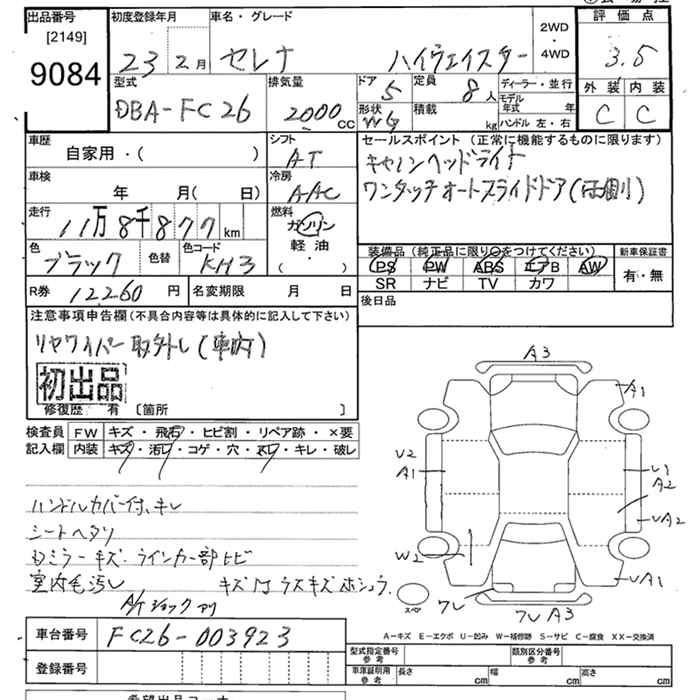 出品番号 初度登録年月 車名・グレード 2WD・4WD 評価点
[2149]
9084 23 2月 セレナ ハイウェイスター 3.5
型式 排気量 ドア 定員 ディーラー・並行 外装 内装
DBA-FC26 2000cc 5 8人 モデル年式 年 C C
形状 積載 kg ハンドル 左・右
WG
車歴 シフト セールスポイント(正常に機能するものに限ります)
自家用・( ) AT キセノンヘッドライト
車検 冷房 ワンタッチオートスライドドア(両側)
年 月( 日) AAC
走行 燃料
11万8千877km ガソリン
軽油
・( )
色 色替 色コード 装備品(純正品に限り○をつけてください) 新車保証書
ブラック KH3 PS PW ABS エアB AW 有・無
SR ナビ TV カワ
R券 12260円 名変期限 月 日 後日品
注意事項申告欄(不具合内容等は具体的に記入して下さい)
リヤワイパー取外し(車内)
初出品
修復歴 有 [箇所 ]
検査員 FW キズ・飛石・ヒビ割・リペア跡・×要
記入欄 内装 キズ・汚レ・コゲ・穴・スレ・キレ・破レ
ハンドルカバー付、キレ
シートヘタリ
ドアミラーキズ、ウインカー部ヒビ
室内毛汚し キズ
A/Tショックアリ
A3
A1
U2
A1
U1
A2
UA2
W2
UA1
スペア
ワレ
ワレA3
A-キズ E-エクボ U-凹み W-補修跡 S-サビ C-腐食 XX-交換済
車台番号 FC26-003923
登録番号
型式指定番号 参考 類別区分番号 参考
車庫証明用 参考 長さ cm 幅 cm 高さ cm